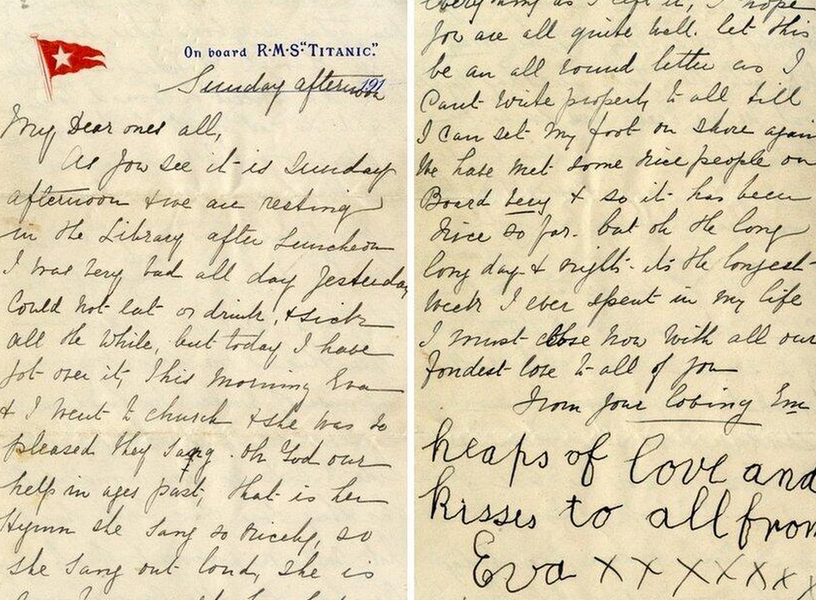 On board R·M·S·"TITANIC."
Sunday afternoon 191
My Dear ones all,
As you see it is Sunday
afternoon & we are resting
in the Library after Luncheon
I was very bad all day yesterday
Could not eat or drink, & sick
all the while, but today I have
got over it, This morning Eva
& I went to church & she was so
pleased they sang . Oh God our
help in ages past, that is her
Hymn she sang so nicely, so
she sang out loud, she is
I hope
you are all quite well. let this
be an all round letter as I
Cant write properly to all till
I can set my foot on shore again
We have met some nice people on
Board & so it has been
nice so far. but oh the long
long day & nights. its the longest
week I ever spent in my life
I must close now with all our
fondest love to all of you
From your loving Em
heaps of love and
kisses to all from
Eva x x x x x x x